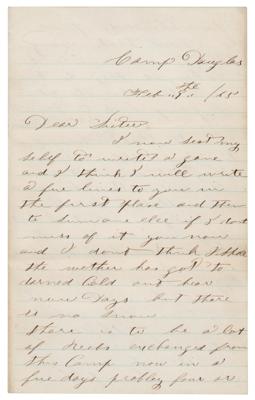 Camp Douglas
Feb 9th /65
Dear Sister
I now seat my
self to write a gane
and I think I will write
a fue lines to you in
the first place and then
to some one else if I dont
mess of it you now
and I dont think I shal
the wether has got to
darned Cold out hear
now Days but there
is no snow
there is to be a lot
of Rebs exchanged from
this Camp now in a
fue days probley four or